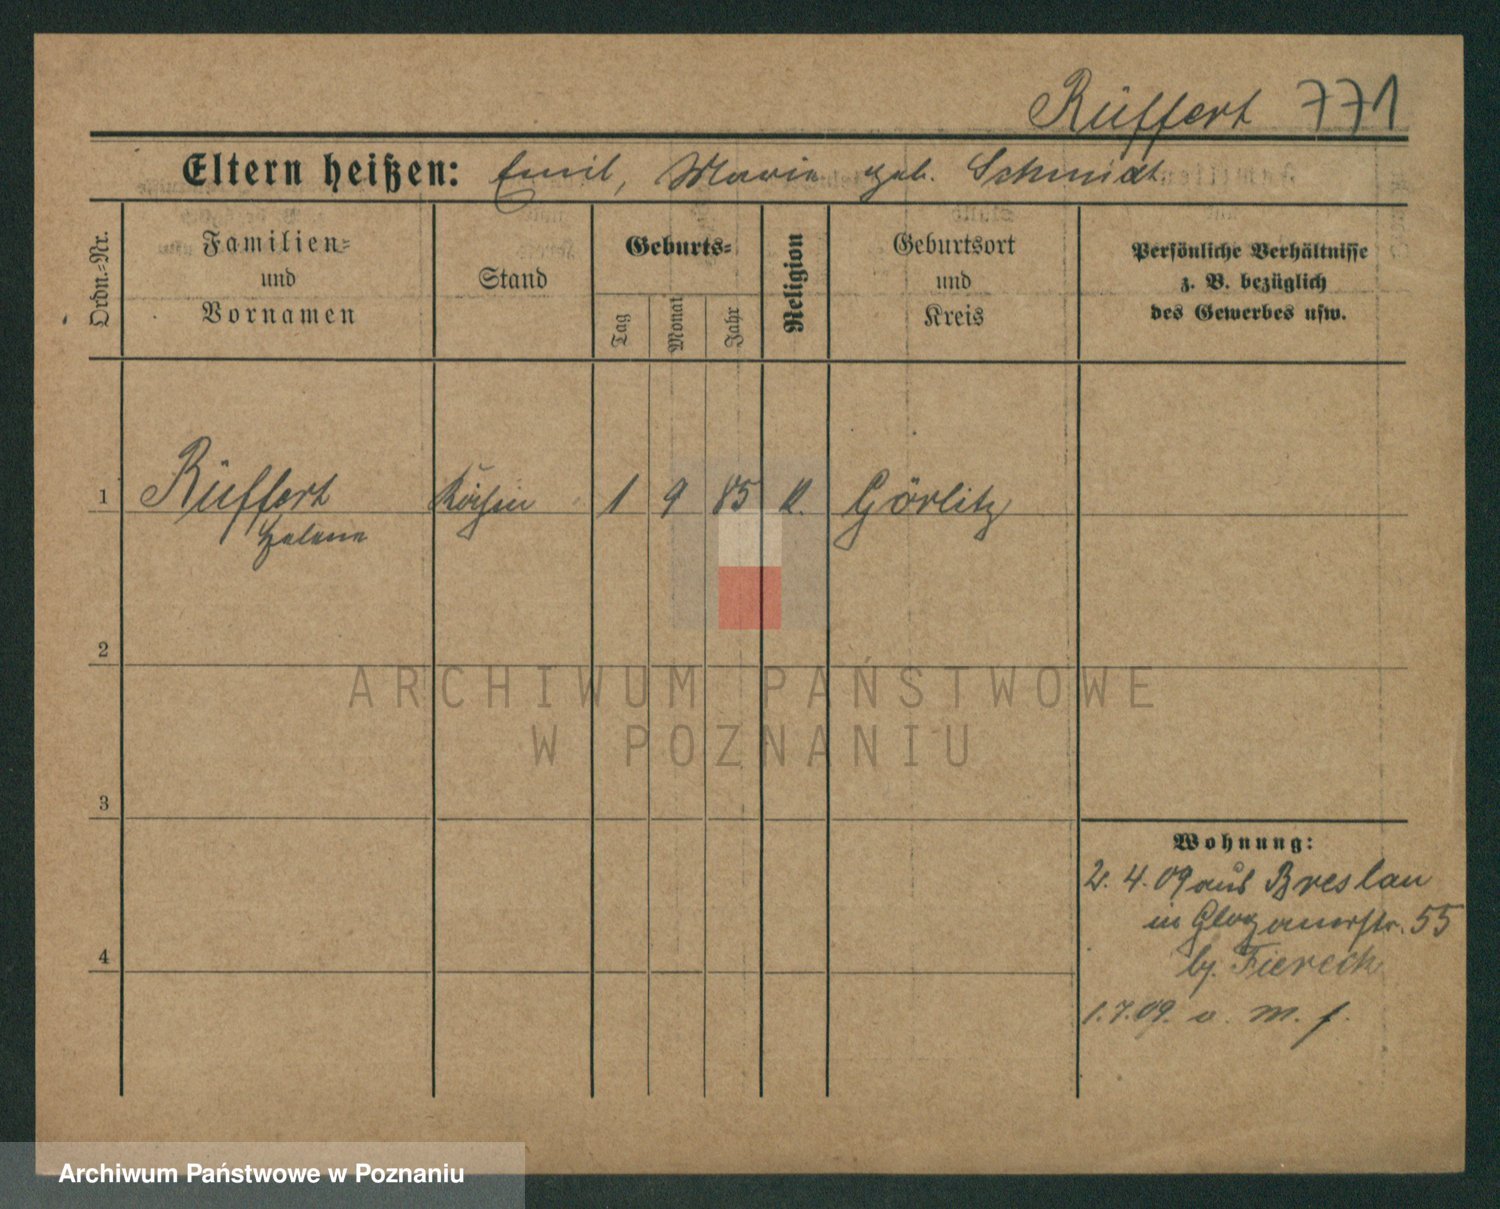 Rüffert 771
Eltern heißen: Emil, Marie geb. Schmidt
Ordn.=Nr.
Familien=
und
Vornamen
Stand
Geburts=
Tag
Monat
Jahr
Religion
Geburtsort
und
Kreis
Persönliche Verhältnisse
z. B. bezüglich
des Gewerbes usw.
1 Rüffert Köchin 1 9 85 Görlitz
Helene
2
3
4
Wohnung:
2. 4. 09 aus Breslau
in Glogauerstr. 55
bj. Fiereck
1.7.09. o. M. f.
ARCHIWUM PAŃSTWOWE
W POZNANIU
Archiwum Państwowe w Poznaniu